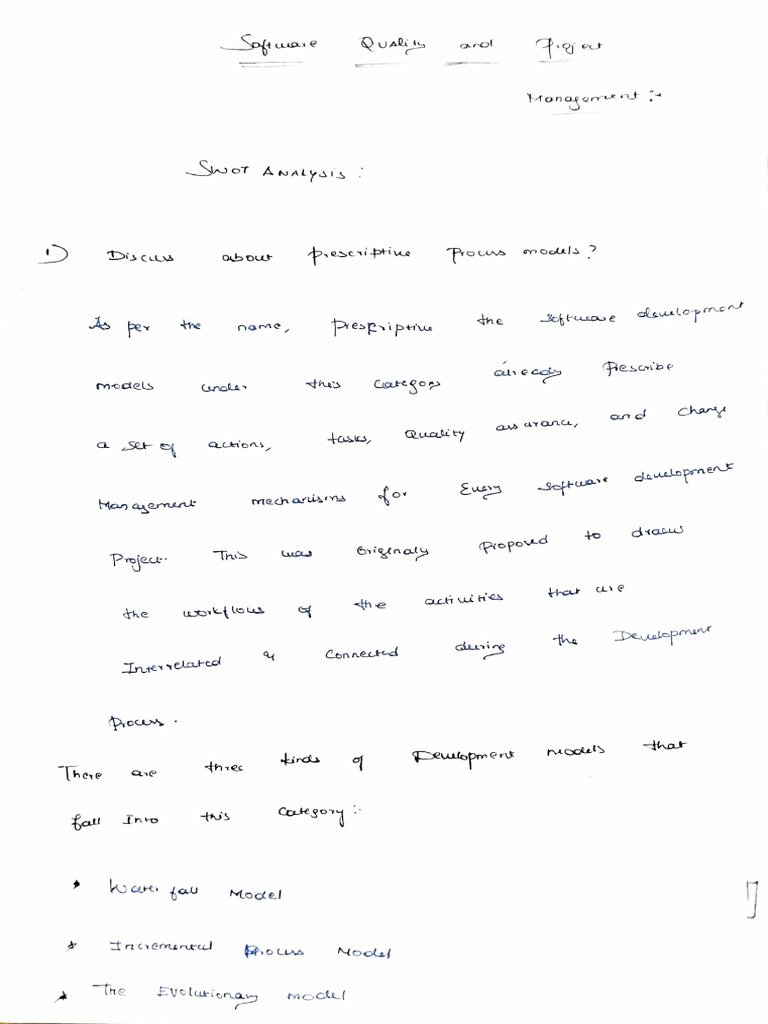 Software Quality and Project
Management :-
SWOT ANALYSIS :
1) Discuss about prescriptive Process models?
As per the name, prescriptive the software development
models under this category already Prescribe
a set of actions, tasks, Quality assurance, and change
Management mechanisms for Every software development
Project. This was originaly proposed to draws
the workflows of the activities that are
Interrelated & Connected during the Development
Process.
There are three kinds of Development models that
fall Into this Category :-
* Water fall Model
* Incremental Process Model
* The Evolutionary model